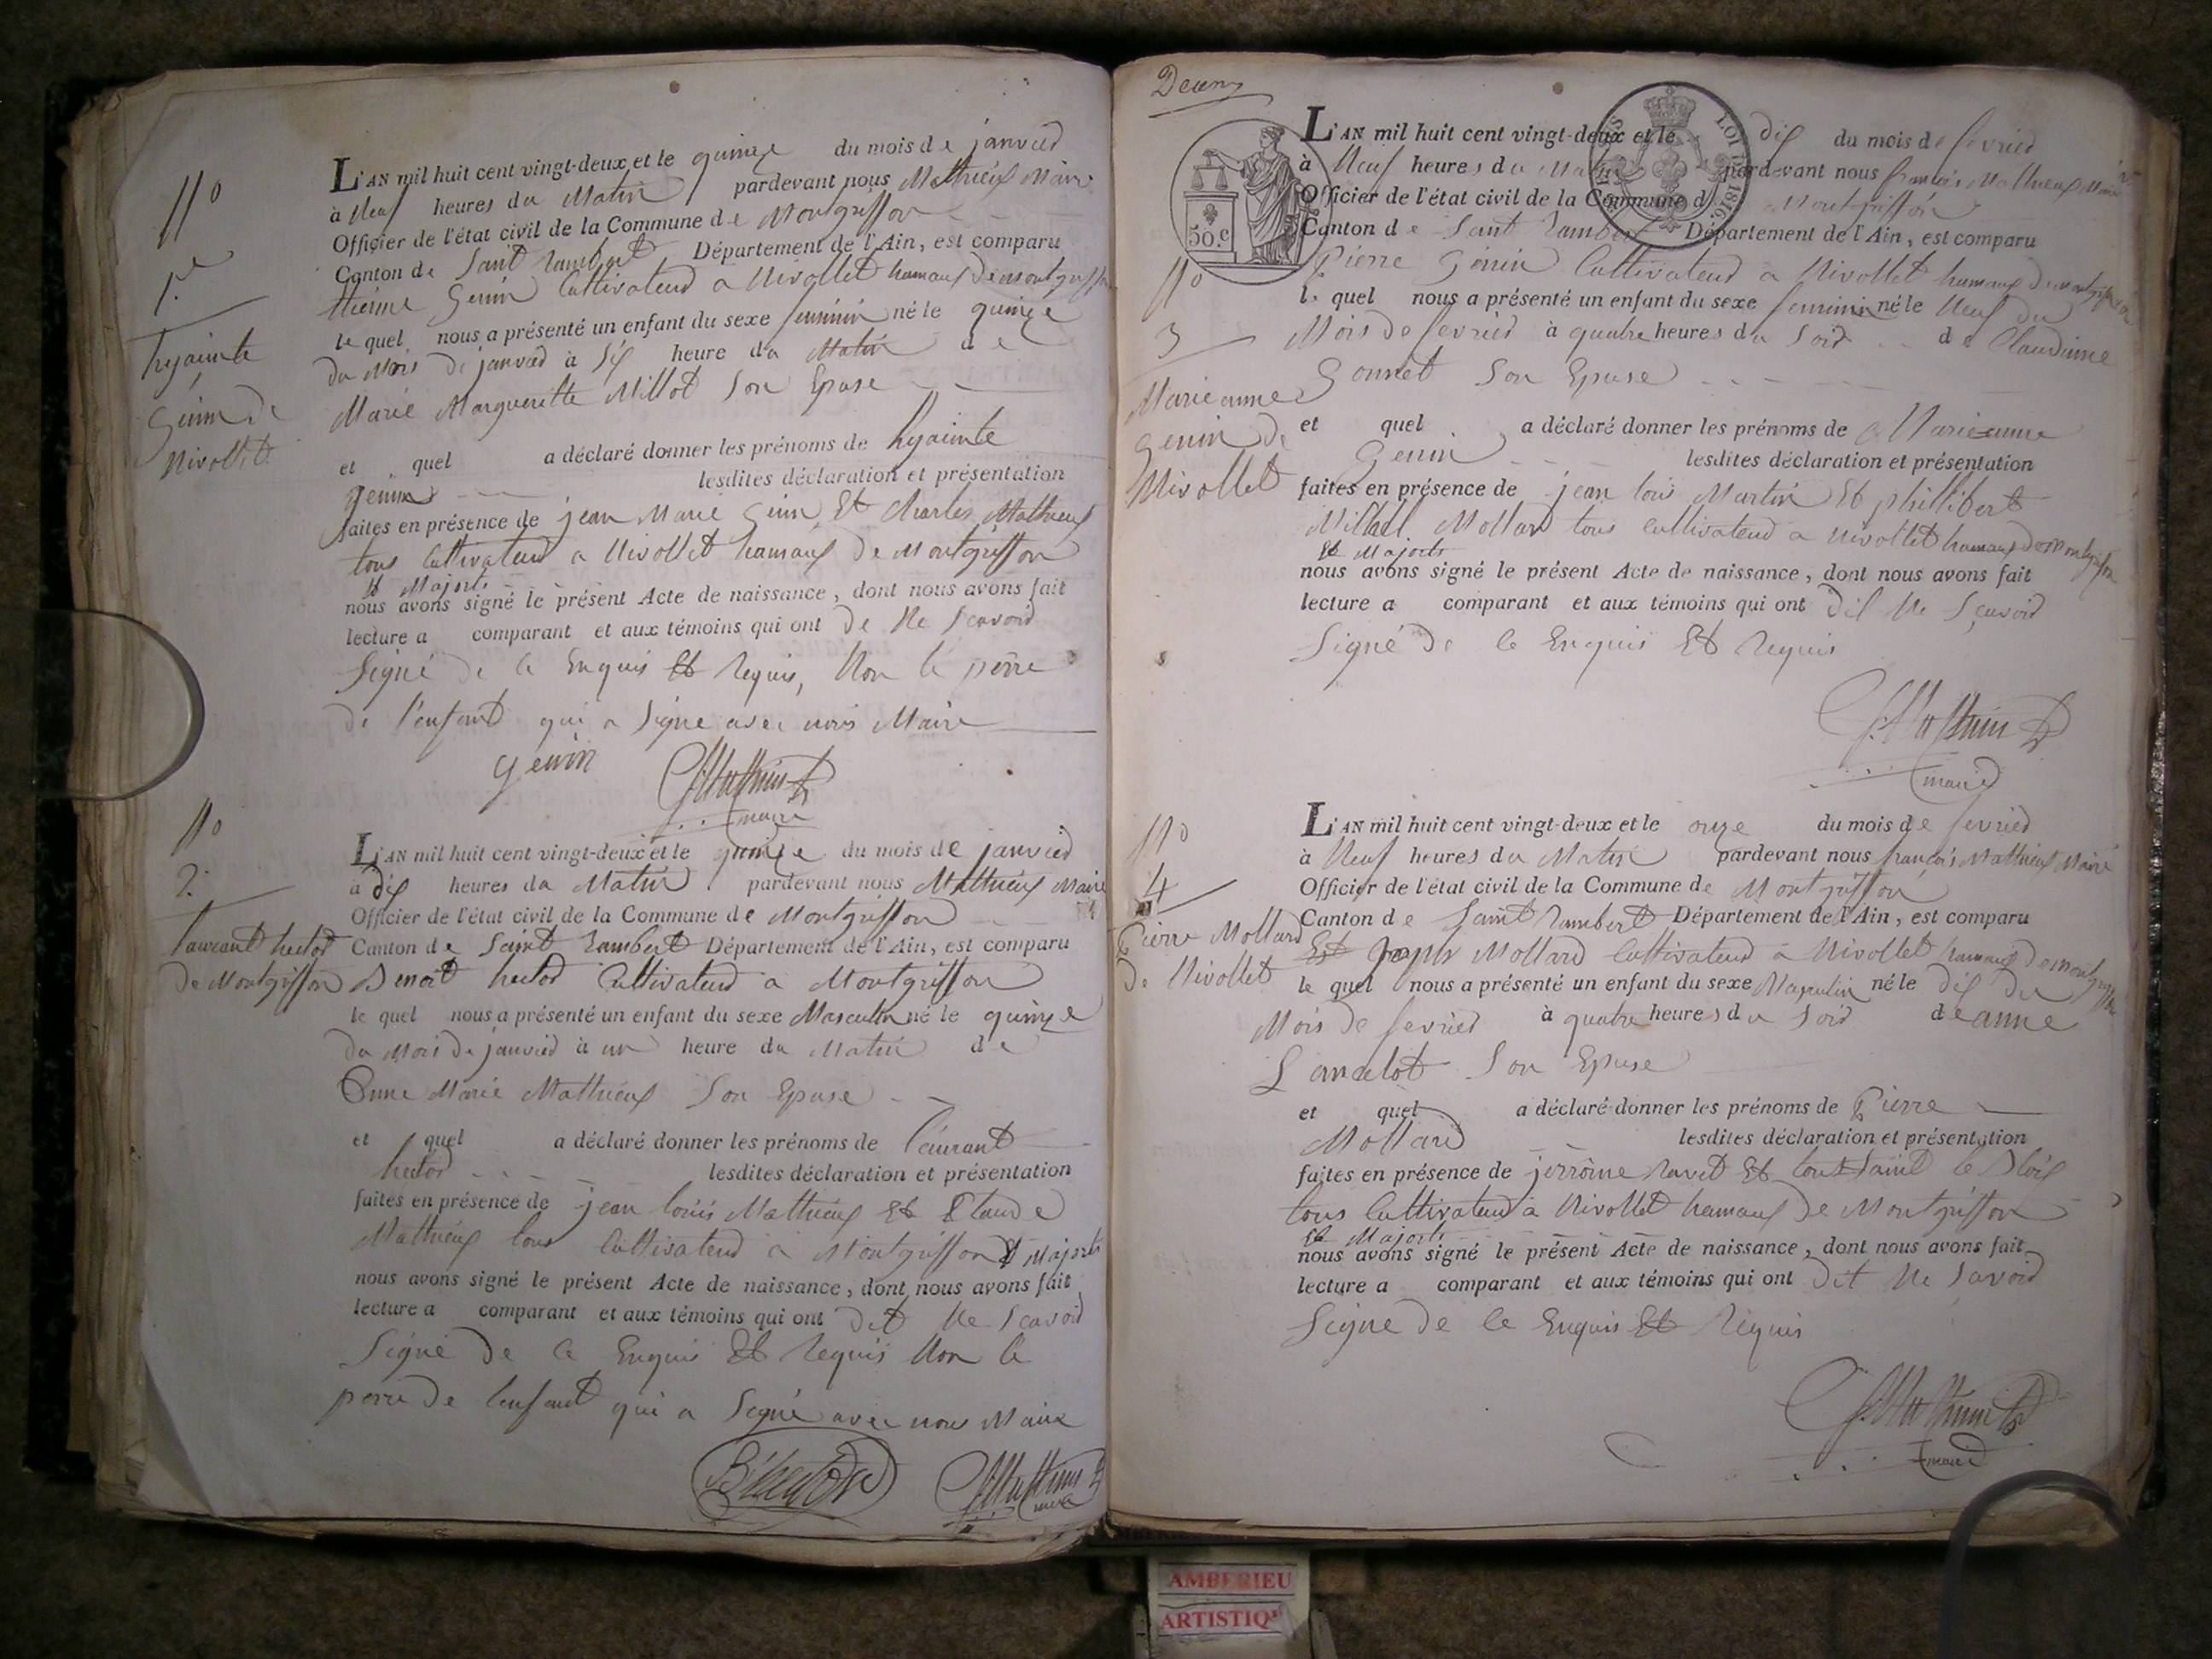 N°
1.er
hyainte
Genin de
Nivollet
L'AN mil huit cent vingt-deux et le quinze du mois de janvied
à Neuf heures du Matin pardevant nous Mathieux Maire
Officier de l'état civil de la Commune de Montgriffon
Canton de Saint Rambert Département de l'Ain, est comparu
Genin Cultivateud a Nivollet hamaux de montgriffon
le quel nous a présenté un enfant du sexe feminin né le quinze
du Mois de janvied à Six heure du Matin de
Marie Margueritte Millot Son Epuse
et quel a déclaré donner les prénoms de hyainte
genin lesdites déclaration et présentation
faites en présence de jean Marie Genin Et Charles Mathieux
tous Cultivateud a Nivollet hamaux de Montgriffon
Et Majorts
nous avons signé le présent Acte de naissance, dont nous avons fait
lecture a comparant et aux témoins qui ont de Ne Scavoid
Signé de Ce Enquis Et Requis, Non le perre
de l'enfant qui a Signe avec nous Maire
genin
maire
N°
2.
Laurant hectod
de Montgriffon
L'AN mil huit cent vingt-deux et le quinze du mois de janvied
à dix heures du Matin pardevant nous Mathieux Maire
Officier de l'état civil de la Commune de Montgriffon
Canton de Saint Rambert Département de l'Ain, est comparu
Benoit hectod Cultivateud a Montgriffon
le quel nous a présenté un enfant du sexe Masculin né le quinze
du Mois de janvied à un heure du Matin de
Anne Marie Mathieux Son Epuse
et quel a déclaré donner les prénoms de Laurant
hectod lesdites déclaration et présentation
faites en présence de jean louis Mathieux Et Claude
Mathieux tous Cultivateud a Montgriffon Et Majorts
nous avons signé le présent Acte de naissance, dont nous avons fait
lecture a comparant et aux témoins qui ont dit Ne Scavoid
Signé de Ce Enquis Et Requis Non le
perre de lenfant qui a Signé avec nous Maire
B. hectod
maire
Deux
50.c
LOI DE 1816
N°
3
Marieanne
genin de
Nivollet
L'AN mil huit cent vingt-deux et le dix du mois de fevried
à Neuf heures du Matin pardevant nous francois Mathieux Maire
Officier de l'état civil de la Commune d Montgriffon
Canton de Saint Rambert Département de l'Ain, est comparu
Pierre Genin Cultivateud a Nivollet hamaux de montgriffon
le quel nous a présenté un enfant du sexe feminin né le Neuf du
Mois de fevried à quatre heures du Soid de Claudinne
Gonnet Son Epuse
et quel a déclaré donner les prénoms de Marieanne
Genin lesdites déclaration et présentation
faites en présence de jean louis Martin Et phillibert
Michel Mollard tous cultivateud a nivollet hamaux de montgriffon
Et Majorts
nous avons signé le présent Acte de naissance, dont nous avons fait
lecture a comparant et aux témoins qui ont dit Ne Sçavoid
Signé de Ce Enquis Et Requis
maire
N°
4
Pierre Mollard
de Nivollet
L'AN mil huit cent vingt-deux et le onze du mois de fevried
à Neuf heures du Matin pardevant nous francois Mathieux Maire
Officier de l'état civil de la Commune de Montgriffon
Canton de Saint Rambert Département de l'Ain, est comparu
Est Joseph Mollard Cultivateud a Nivollet hamaux de montgriffon
le quel nous a présenté un enfant du sexe Masculin né le dix du
Mois de fevried à quatre heures du Soid de anne
Lancelot Son Epuse
et quel a déclaré donner les prénoms de Pierre
Mollard lesdites déclaration et présentation
faites en présence de jerrôme ravet Et toutSaint le Blois
tous Cultivateud a Nivollet hamaux de Montgriffon
Et Majorts
nous avons signé le présent Acte de naissance, dont nous avons fait
lecture a comparant et aux témoins qui ont dit Ne Savoid
Signe de Ce Enquis Et Requis
maire
AMBERIEU
ARTISTIQ